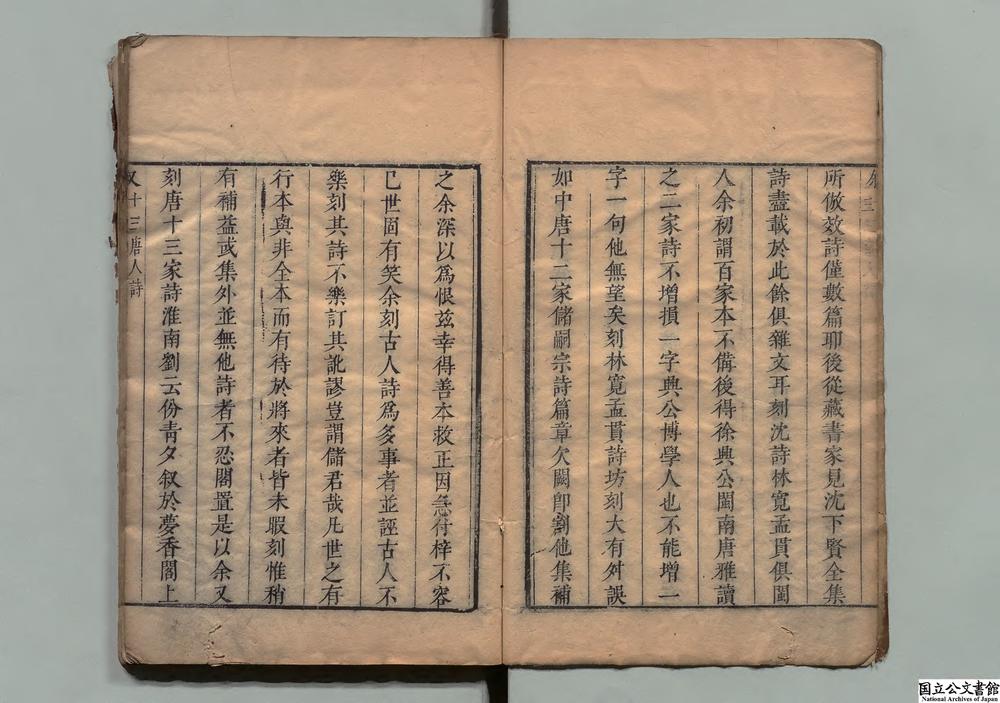 所倣效詩僅數篇耶後從藏書家見沈下賢全集
詩盡載於此餘俱雜文耳刻沈詩林寬孟貫俱閩
人余初謂百家本不備後得徐興公閩南唐雅讀
之二家詩不增損一字興公博學人也不能增一
字一句他無望矣刻林寬孟貫詩坊刻大有舛誤
如中唐十二家儲嗣宗詩篇章欠闕卽劉他集補
之余深以爲恨玆幸得善本救正因急付梓不容
已世固有笑余刻古人詩爲多事者並誣古人不
樂刻其詩不樂訂其訛謬豈謂儲君哉凡世之有
行本與非全本而有待於將來者皆未暇刻惟稍
有補益或集外並無他詩者不忍閣置是以余又
刻唐十三家詩淮南劉云份青夕叙於夢香閣上
又十三唐人詩
国立公文書館
National Archives of Japan